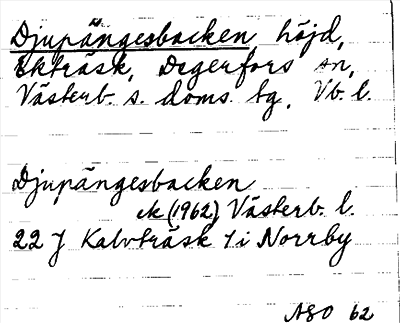 Djupängesbacken höjd,
Ekträsk, Degerfors sn,
Västerb. s. doms. tg, Vb. l.
Djupängesbacken
ek (1962) Västerb. l.
22 J Kalvträsk 7 i Norrby
ASO 62